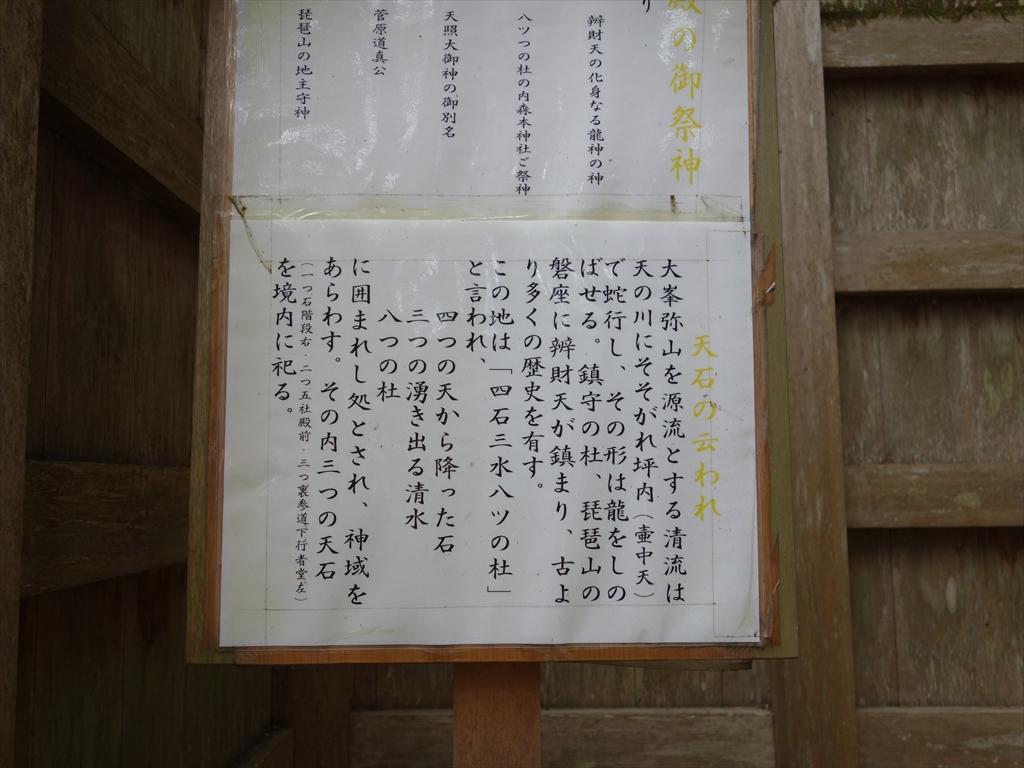 殿の御祭神
り
辨財天の化身なる龍神の神
八ツつの杜の内森本神社ご祭神
天照大御神の御別名
菅原道真公
琵琶山の地主守神
天石の云われ
大峯弥山を源流とする清流は
天の川にそそがれ坪内（壷中天）
で蛇行し、その形は龍をしの
ばせる。鎮守の杜、琵琶山の
磐座に辨財天が鎮まり、古よ
り多くの歴史を有す。
この地は「四石三水八ツの杜」
と言われ、
四つの天から降った石
三つの湧き出る清水
八つの杜
に囲まれし処とされ、神域を
あらわす。その内三つの天石
（一つ石階段右．二つ五社殿前．三つ裏参道下行者堂左）
を境内に祀る。